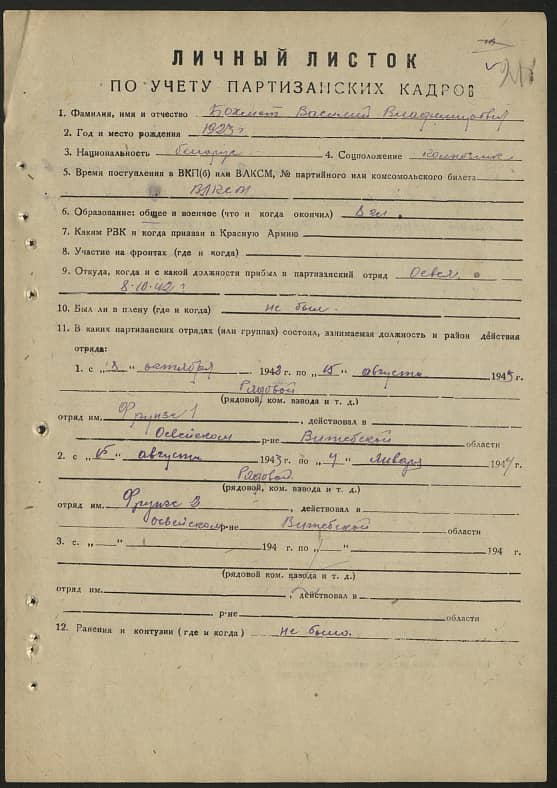 ЛИЧНЫЙ ЛИСТОК
ПО УЧЕТУ ПАРТИЗАНСКИХ КАДРОВ
1. Фамилия, имя и отчество Василий Владимирович
2. Год и место рождения 1923 г
3. Национальность белорус 4. Соцположение колхозник
5. Время поступления в ВКП(б) или ВЛКСМ, № партийного или комсомольского билета
ВЛКСМ
6. Образование: общее и военное (что и когда окончил) 5 кл.
7. Каким РВК и когда призван в Красную Армию
8. Участие на фронтах (где и когда)
9. Откуда, когда и с какой должности прибыл в партизанский отряд
8.10.42 г
10. Был ли в плену (где и когда) не был.
11. В каких партизанских отрядах (или группах) состоял, занимаемая должность и район действия
отряда:
1. с „8“ октября 1942 г. по „15“ августа 1943 г.
Рядовой
(рядовой, ком. взвода и т. д.)
отряд им. Фрунзе 1, действовал в
Освейском р-не Витебской области
2. с „15“ августа 1943 г. по „4“ Января 1944 г.
Рядовой
(рядовой, ком. взвода и т. д.)
отряд им. Фрунзе 3, действовал в
освейском р-не Витебской области
3. с „ “ 194 г. по „ “ 194 г.
(рядовой, ком. взвода и т. д.)
отряд им. , действовал в
р-не области
12. Ранения и контузии (где и когда) не было.